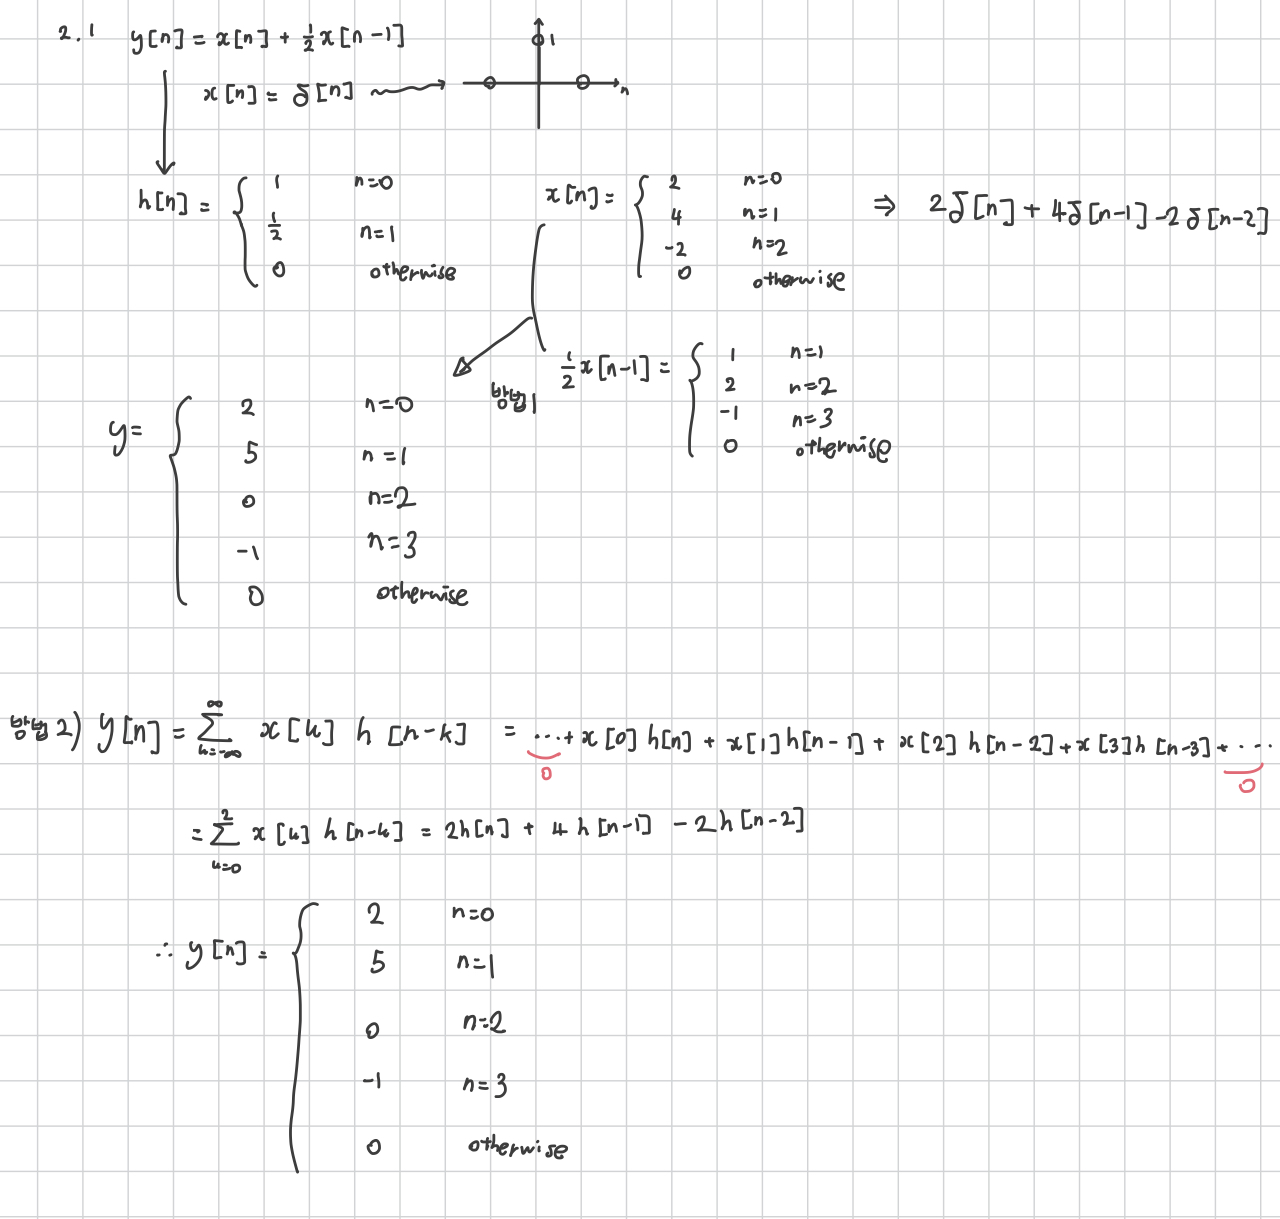 2.1 y[n] = x[n] + 1/2 x[n-1]
1
x[n] = δ[n]
n
h[n] = { 1 n=0
1/2 n=1
0 otherwise
x[n] = { 2 n=0
4 n=1
-2 n=2
0 otherwise
⇒ 2δ[n] + 4δ[n-1] -2δ[n-2]
1/2 x[n-1] = { 1 n=1
2 n=2
-1 n=3
0 otherwise
방법1
y= { 2 n=0
5 n=1
0 n=2
-1 n=3
0 otherwise
방법2) y[n] = ∑_{k=-∞}^{∞} x[k] h[n-k] = ···+ x[0]h[n] + x[1]h[n-1] + x[2]h[n-2] + x[3]h[n-3] + ···
0 0
= ∑_{k=0}^{2} x[k] h[n-k] = 2h[n] + 4h[n-1] - 2h[n-2]
∴ y[n] = { 2 n=0
5 n=1
0 n=2
-1 n=3
0 otherwise